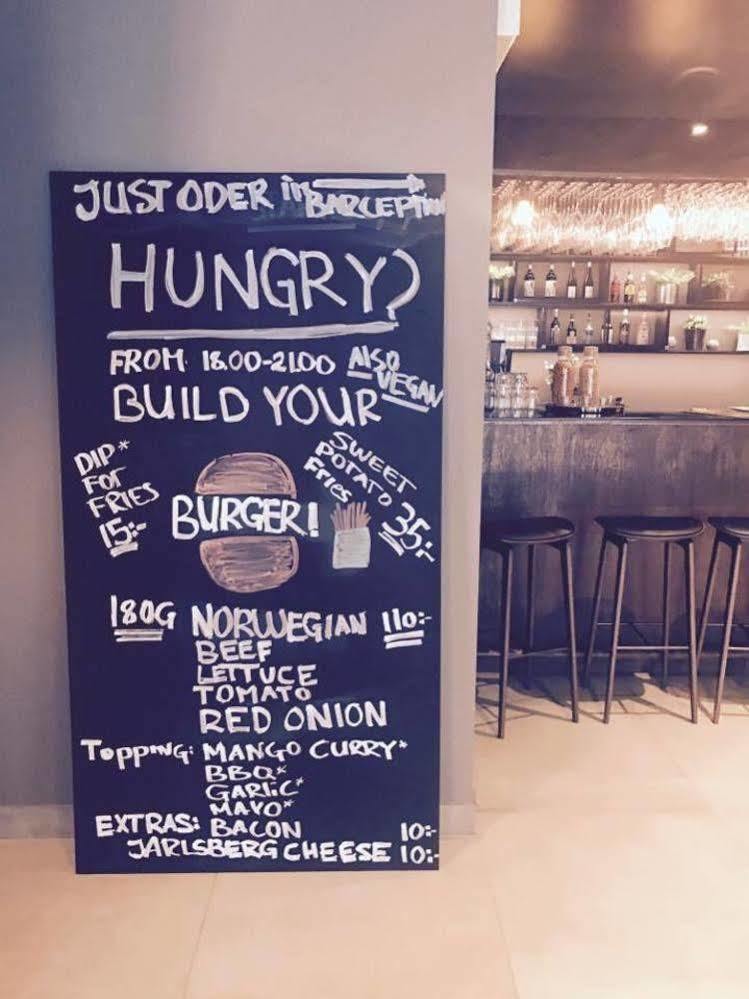 JUST ODER in BARCEPTION
HUNGRY?
FROM 18.00-21.00 ALSO VEGAN
BUILD YOUR
DIP*
FOR
FRIES
15:-
BURGER!
SWEET
POTATO
Fries 35:-
180G NORWEGIAN 110:-
BEEF
LETTUCE
TOMATO
RED ONION
TOPPING: MANGO CURRY*
BBQ*
GARLIC*
MAYO*
EXTRAS: BACON 10:-
JARLSBERG CHEESE 10:-